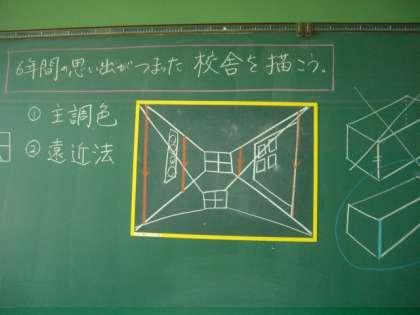 6年間の思い出がつまった 校舎を描こう。
① 主調色
② 遠近法